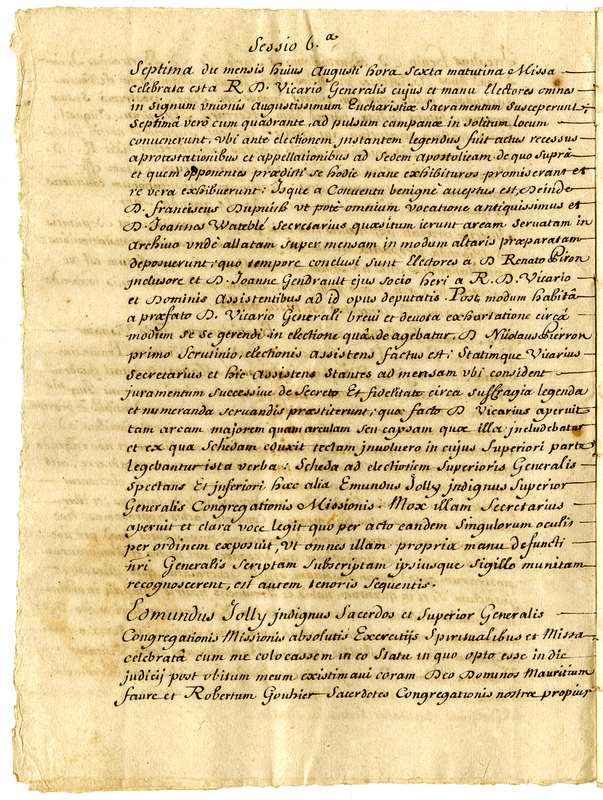 Sessio 6.a
Septima die mensis huius Augusti hora sexta matutina Missa
celebrata est a R. D. Vicario Generalis cujus et manu Electores omnes
in signum vnionis Augustissimum Eucharistiæ Sacramentum susceperunt;
septimâ verò cum quadrante, ad pulsum campanæ in solitum locum
convenerunt, vbi antè electionem jnstantem legendus fuit actus recessus
a protestationibus et appellationibus ad Sedem Apostolicam de quo suprà
et quem opponentes prædicti se hodie mane exhibituros promiserant et
re vera exhibuerunt: isque a Conventu benignè acceptus est, Deinde
D. franciscus Dupuich vt potè omnium vocatione antiquissimus et
D. Joannes Wateblé Secretarius quæsitum ierunt arcam servatam in
Archivo vndè allatam super mensam in modum altaris præparatam
deposuerunt; quo tempore conclusi sunt Electores a D Renato Hiron
jnclusore et D. Joanne Gendrault ejus socio heri a R. D. Vicario
et Dominis Assistentibus ad id opus deputatis. Post modum habitâ
a præfato D. Vicario Generali brevi et devota exhortatione circà
modum se se gerendi in electione quâ de agebatur, D Nicolaus Pierron
primo Scrutinio, electionis assistens factus est; Statimque Vicarius
Secretarius et hic Assistens stantes ad mensam vbi consident
juramentum successive de secreto et fidelitate circa suffragia legenda
et numeranda servandis præstiterunt; quo facto D Vicarius aperuit
tam arcam majorem quam arculam seu capsam quæ illa includebatur
et ex qua Schedam eduxit tectam jnvolucro in cujus superiori parte
legebantur ista verba: Scheda ad electionem Superioris Generalis
spectans Et jnferiori hæc alia Emundus Jolly jndignus Superior
Generalis Congregationis Missionis. Mox illam Secretarius
aperuit et clara voce legit quo per acto eandem singulorum oculis
per ordinem exposuit, vt omnes illam propria manu defuncti
nri Generalis scriptam subscriptam ipsiusque sigillo munitam
recognoscerent, est autem tenoris sequentis.
Edmundus Jolly jndignus Sacerdos et Superior Generalis
Congregationis Missionis absolutis Exercitijs Spiritualibus et Missa
celebratâ cum me colocassem in eo statu in quo opto esse in die
judicij post obitum meum existimavi coram Deo Dominos Mauritium
faure et Robertum Gouhier Sacerdotes Congregationis nostræ propius